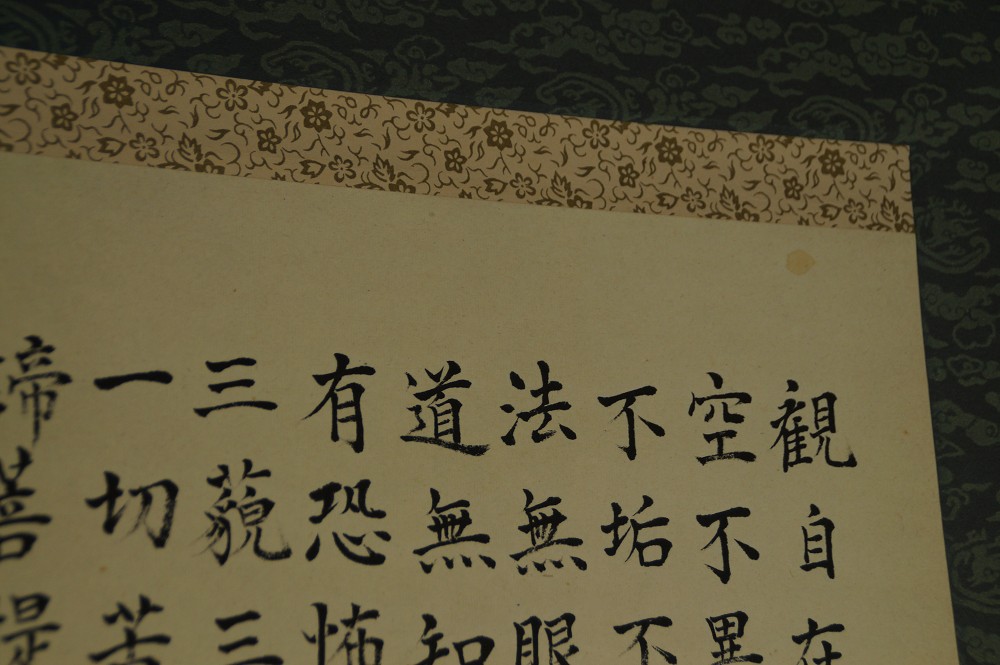 觀自在
空不異
不垢不
法無眼
道無知
有恐怖
三藐三
一切苦
諦菩提